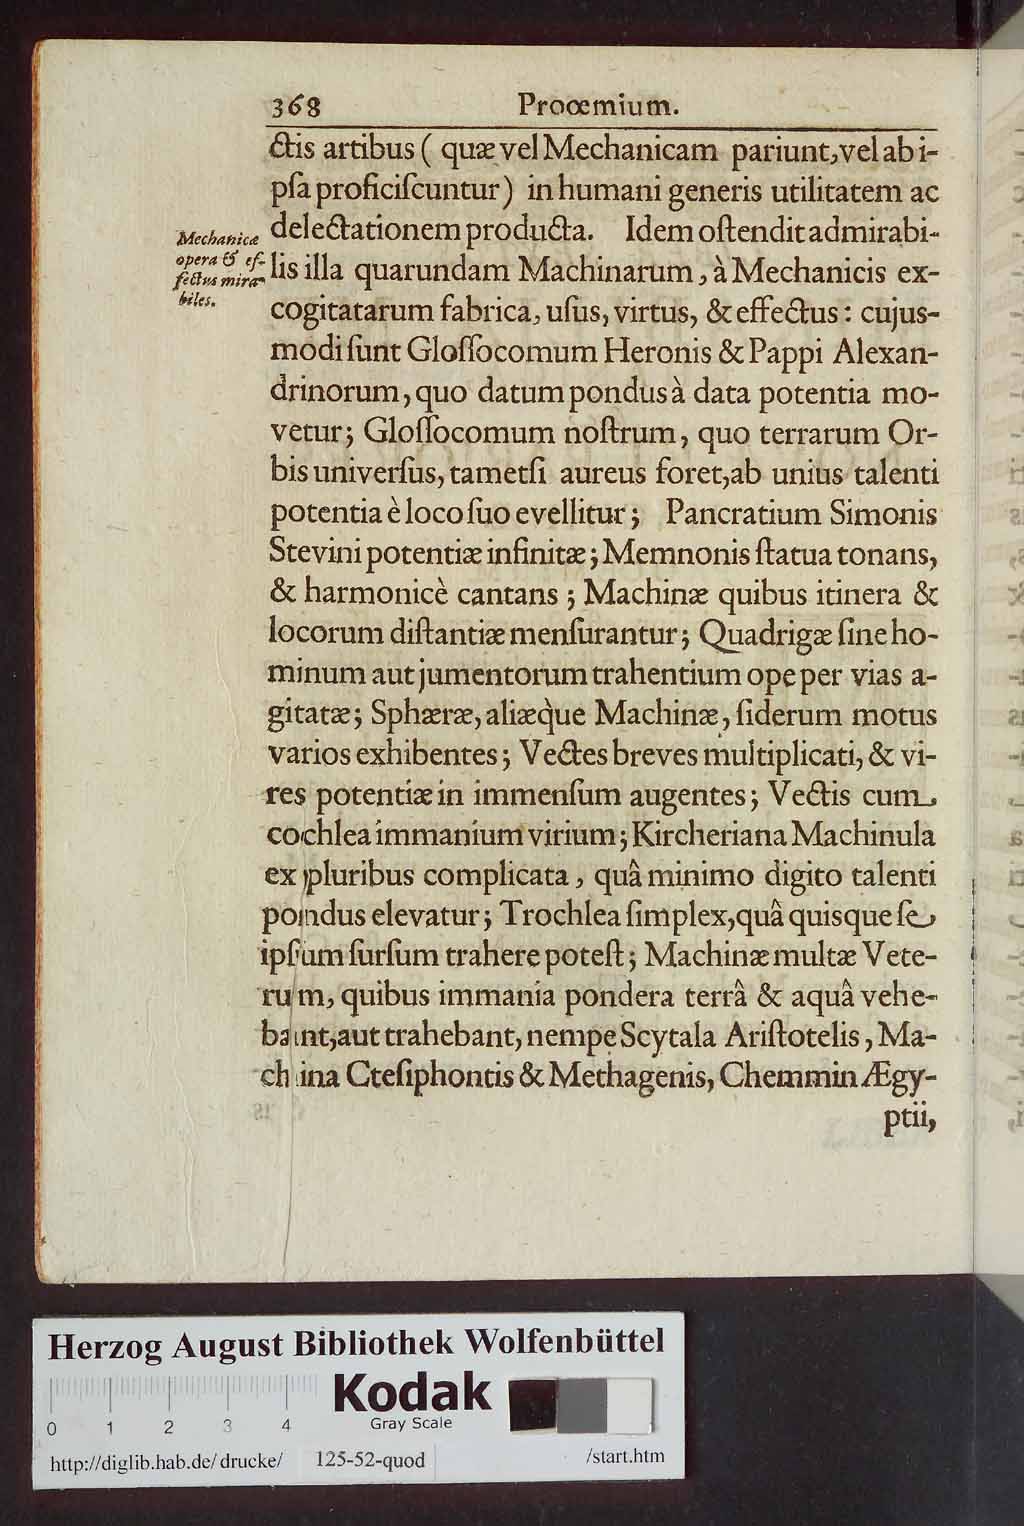 368 Prooemium.
ctis artibus ( quæ vel Mechanicam pariunt, vel ab i-
pſa proficiſcuntur) in humani generis utilitatem ac
delectationem producta. Idem oſtendit admirabi-
lis illa quarundam Machinarum, à Mechanicis ex-
cogitatarum fabrica, uſus, virtus, & effectus: cujus-
modi ſunt Gloſſocomum Heronis & Pappi Alexan-
drinorum, quo datum pondus à data potentia mo-
vetur; Gloſſocomum noſtrum, quo terrarum Or-
bis univerſus, tametſi aureus foret, ab unius talenti
potentia è loco ſuo evellitur; Pancratium Simonis
Stevini potentiæ infinitæ; Memnonis ſtatua tonans,
& harmonicè cantans; Machinæ quibus itinera &
locorum diſtantiæ menſurantur; Quadrigæ ſine ho-
minum aut jumentorum trahentium ope per vias a-
gitatæ; Sphæræ, aliæq̀ue Machinæ, ſiderum motus
varios exhibentes; Vectes breves multiplicati, & vi-
res potentiæ in immenſum augentes; Vectis cum
cochlea immanium virium; Kircheriana Machinula
ex pluribus complicata, quâ minimo digito talenti
pondus elevatur; Trochlea ſimplex, quâ quisque ſe
ipſum ſurſum trahere poteſt; Machinæ multæ Vete-
rum, quibus immania pondera terrâ & aquâ vehe-
bant, aut trahebant, nempe Scytala Ariſtotelis, Ma-
china Cteſiphontis & Methagenis, Chemmin Ægy-
ptii,
Mechanicæ
opera & ef-
fectus mira-
biles.
Herzog August Bibliothek Wolfenbüttel
Kodak
Gray Scale
0 1 2 3 4
http://diglib.hab.de/drucke/ 125-52-quod /start.htm